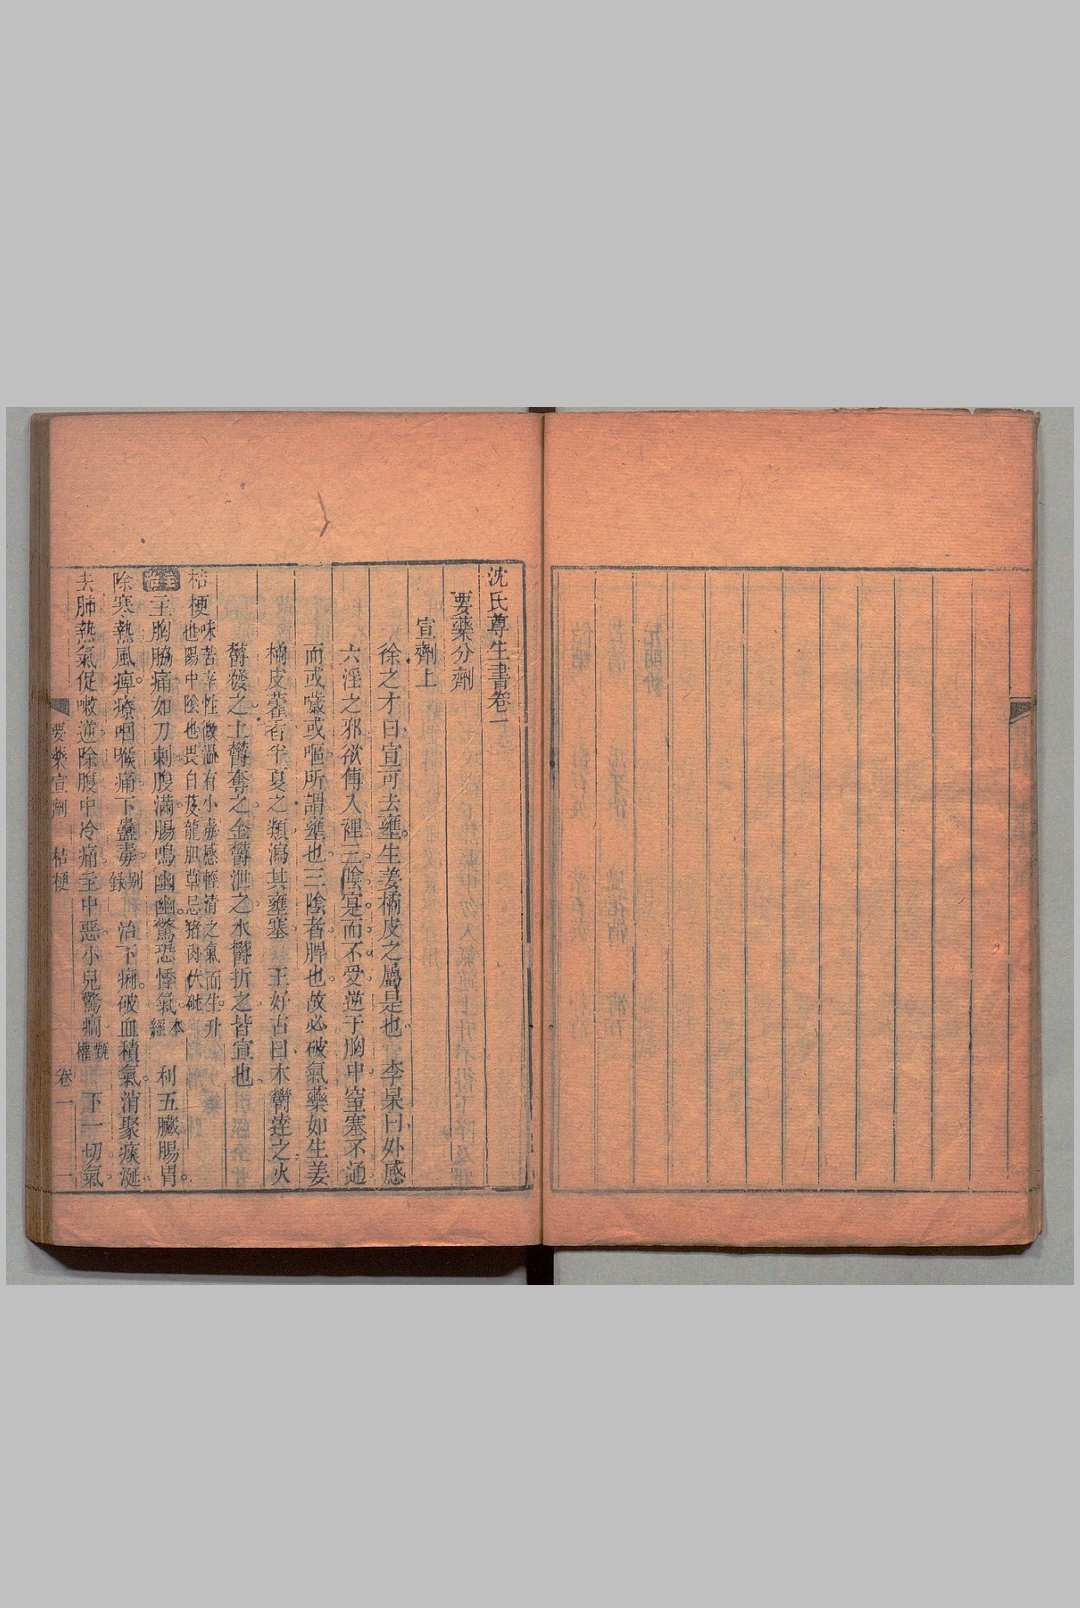 沈氏尊生書卷一
要藥分劑
宣劑上
徐之才曰宣可去壅生姜橘皮之屬是也 李杲曰外感
六淫之邪欲傳入裡三陰寔而不受逆于胸中窒塞不通
而或噦或嘔所謂壅也三陰者脾也故必破氣藥如生姜
橘皮藿香半夏之類瀉其壅塞 王好古曰木鬱達之火
鬱發之土鬱奪之金鬱泄之水鬱折之皆宣也
桔梗味苦辛性微溫有小毒感輕清之氣而生升
也陽中陰也畏白芨龍胆草忌猪肉伏砒
主治主胸脇痛如刀刺腹滿腸鳴幽幽驚恐悸氣本經 利五臟腸胃
除寒熱風痺療咽喉痛下蠱毒別錄 治下痢破血積氣消聚痰涎
去肺熱氣促嗽逆除腹中冷痛主中惡小兒驚癇甄權 下一切氣
要藥宣劑 桔梗 卷一 一